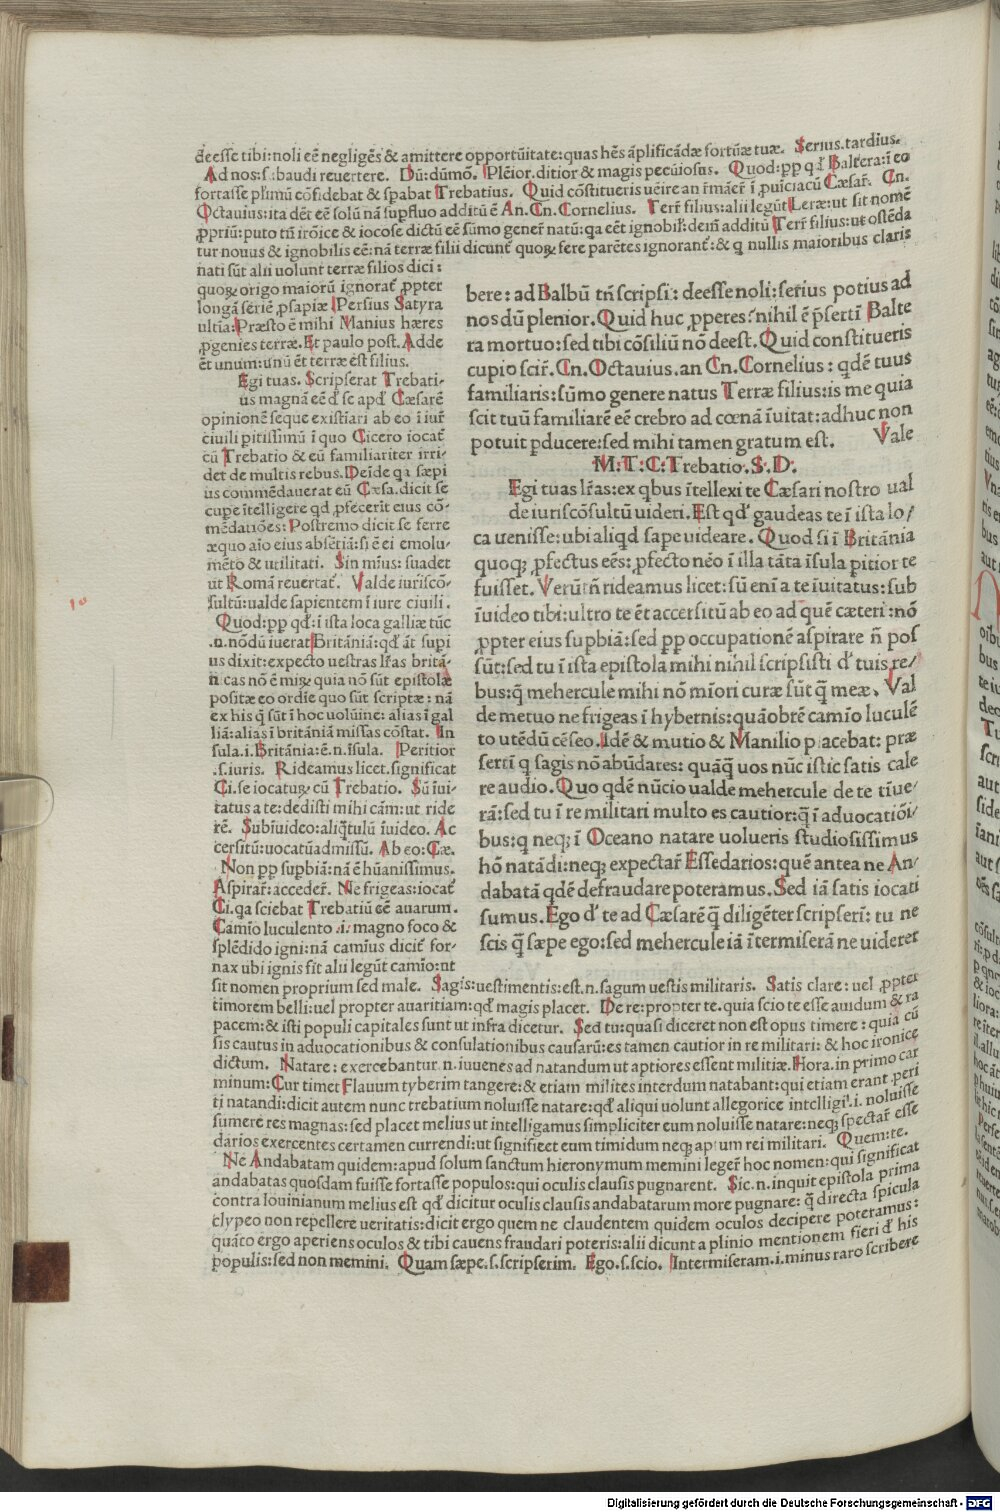 deesse tibi:noli eē negligēs & amittere opportūitate:quas hēs āplificādæ fortūæ tuæ. Serius.tardius.
Ad nos:s.baudi reuertere. Dū:dūmō. Plēior.ditior & magis pecūiosus. Quod:pp qd Baltera:ī eo
fortasse plimū cōfidebat & spabat Trebatius. Quid cōstitueris ueire an rmāer ī puīciacū Cæsar. Cn.
Octauius:ita dēt eē solū nā supfluo additū ē An.Cn.Cornelius. Terr filius:alii legūt Leræ:ut sit nomē
ppriū:puto tn irōice & iocose dictū eē sūmo gener natū:qa eēt ignobil:dem additū Terr filius:ut ostēda
tur nouus & ignobilis eē:nā terræ filii dicunt quoꝝ fere parētes ignorant:& q nullis maioribus claris
nati sūt alii uolunt terræ filios dici:
quoꝝ origo maiorū ignorat ppter
longā seriē psapiæ Persius Satyra
ultia:Præsto ē mihi Manius hæres
pgenies terræ.Et paulo post.Adde
ēt unum:unū ēt terræ est filius.
Egi tuas. Scripserat Trebati-
us magnā eē d se apd Cæsarē
opinionē seque existiari ab eo ī iur
ciuili pitissimū ī quo Cicero iocat
cū Trebatio & eū familiariter irri-
det de multis rebus.Deīde qa sæpi
us commēdauerat eū Cæsa.dicit se
cupe ītelligere qd pfecerit eius cō-
mēdatiōes:Postremo dicit se ferre
æquo aīo eius absētiā:si ē ei emolu-
mēto & utilitati. Sin mīus:suadet
ut Romā reuertat. Valde iuriscō-
sultū:ualde sapientem ī iure ciuili.
Quod:pp qd:ī ista loca galliæ tūc
.n.nōdū iuerat Britāniā:qd āt supi
us dixit:expecto uestras lras britā-
nicas nō ē miꝝ quia nō sūt epistolæ
positæ eo ordīe quo sūt scriptæ:nā
ex his q sūt ī hoc uolūine:alias ī gal
liā:alias ī britāniā missas cōstat. In
sula.i.Britānia:ē.n.īsula. Peritior
.s.iuris. Rideamus licet.significat
Ci.se iocatuꝝ cū Trebatio. Sū īui-
tatus a te:dedisti mihi cām:ut ride
rē. Subīuideo:aliqtulū īuideo. Ac
cersitū:uocatū admissū. Ab eo:Cæ.
Non pp supbiā:nā ē hūanissimus.
Aspirar:acceder. Ne frigeas:iocat
Ci.qa sciebat Trebatiū eē auarum.
Camīo luculento.i.magno foco &
splēdido igni:nā camīus dicit for-
nax ubi ignis fit alii legūt camīo:ut
bere:ad Balbū tn scripsi:deesse noli:serius potius ad
nos dū plenior.Quid huc pperes?nihil ē psertī Balte
ra mortuo:sed tibi cōsiliū nō deest.Quid constitueris
cupio scir.Cn.Octauius.an Cn.Cornelius:qdē tuus
familiaris:sūmo genere natus Terræ filius:is me quia
scit tuū familiarē eē crebro ad cœnā īuitat:adhuc non
potuit pducere:sed mihi tamen gratum est. Vale
M:T:C:Trebatio.S.D.
Egi tuas lras:ex qbus ītellexi te Cæsari nostro ual
de iuriscōsultū uideri.Est qd gaudeas te ī ista lo/
ca uenisse:ubi aliqd sape uideare. Quod si ī Britānia
quoqꝫ pfectus eēs:pfecto nēo ī illa tāta īsula pitior te
fuisset.Verūtn rideamus licet:sū enī a te īuitatus:sub
īuideo tibi:ultro te ēt accersitū ab eo ad quē cæteri:nō
ppter eius supbiā:sed pp occupationē aspirare n pos
sūt:sed tu ī ista epistola mihi nihil scripsisti d tuis re/
bus:q mehercule mihi nō mīori curæ sūt q meæ. Val
de metuo ne frigeas ī hybernis:quāobrē camīo luculē
to utēdū cēseo.Idē & mutio & Manilio placebat:præ
sertī q sagis nō abūdares:quāq uos nūc istic satis cale
re audio.Quo qdē nūcio ualde mehercule de te tīue-
rā:sed tu ī re militari multo es cautior:q ī aduocatiōi-
bus:q neqꝫ ī Oceano natare uolueris studiosissimus
hō natādi:neqꝫ expectar Essedarios:quē antea ne An-
dabatā qdē defraudare poteramus.Sed iā satis iocati
sumus.Ego d te ad Cæsarē q diligēter scripserī:tu ne
scis q sæpe ego:sed mehercule iā ītermiserā ne uideret
sit nomen proprium sed male. Sagis:uestimentis:est.n.sagum uestis militaris. Satis clare:uel ppter
timorem belli:uel propter auaritiam:qd magis placet. De re:propter te.quia scio te esse auidum & ra
pacem:& isti populi capitales sunt ut infra dicetur. Sed tu:quasi diceret non est opus timere:quia cū
sis cautus in aduocationibus & consulationibus causarū:es tamen cautior in re militari:& hoc ironice
dictum. Natare:exercebantur.n.iuuenes ad natandum ut aptiores essent militiæ.Hora.in primo car
minum:Cur timet Flauum tyberim tangere:& etiam milites interdum natabant:qui etiam erant peri
ti natandi:dicit autem nunc trebatium noluisse natare:qd aliqui uolunt allegorice intelligi.i.noluisse
sumere res magnas:sed placet melius ut intelligamus simpliciter eum noluisse natare:neqꝫ spectar esse
darios exercentes certamen currendi:ut significet eum timidum neqꝫ aptum rei militari. Quem:te.
Ne Andabatam quidem:apud solum sanctum hieronymum memini leger hoc nomen:qui significat
andabatas quosdam fuisse fortasse populos:qui oculis clausis pugnarent. Sic.n.inquit epistola prima
contra Iouinianum melius est qd dicitur oculis clausis andabatarum more pugnare:q directa spicula
clypeo non repellere ueritatis:dicit ergo quem ne claudentem quidem oculos decipere poteramus:
quāto ergo aperiens oculos & tibi cauens fraudari poteris:alii dicunt a plinio mentionem fieri d his
populis:sed non memini. Quam sæpe.s.scripserim. Ego.s.scio. Intermiseram.i.minus raro scribere
Digitalisierung gefördert durch die Deutsche Forschungsgemeinschaft - DFG